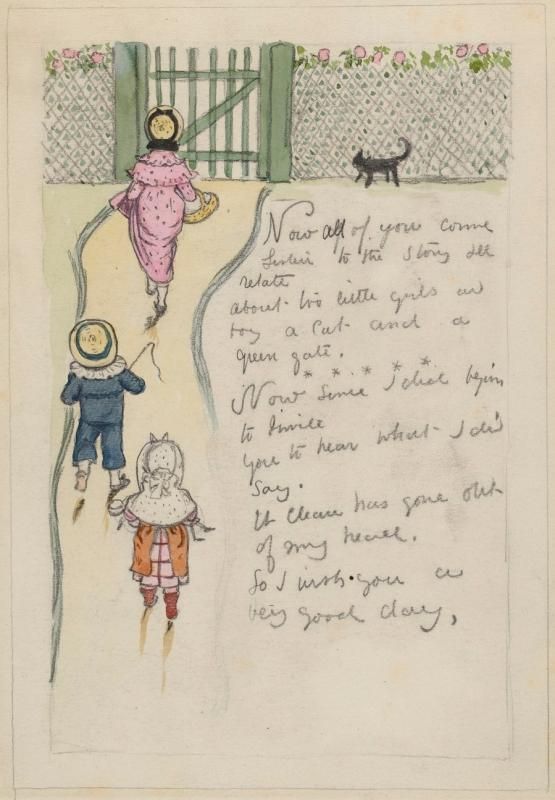 Now all of you come
listen to the story Ill
relate
about two little girls a
boy a Cat and a
green gate.
* * * * *
Now since I did begin
to invite
you to hear what I did
say.
It clean has gone out
of my head.
So I wish you a
very good day,